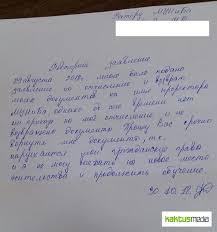 Ректору МУИиБа
Повторное заявление
29 августа 2018г. мною было подано
заявление об отчислении и возврат
моих документов на имя проректора
МУИиБа однако до сего времени нет
ни приказ на моё отчисление и не
возвращены документы. Прошу Вас срочно
вернуть мне документы, т.к.
нарушается мои гражданские права
и я не могу выехать на новое место
жительства и продолжить обучение.
30.10.18
kaktusmedia